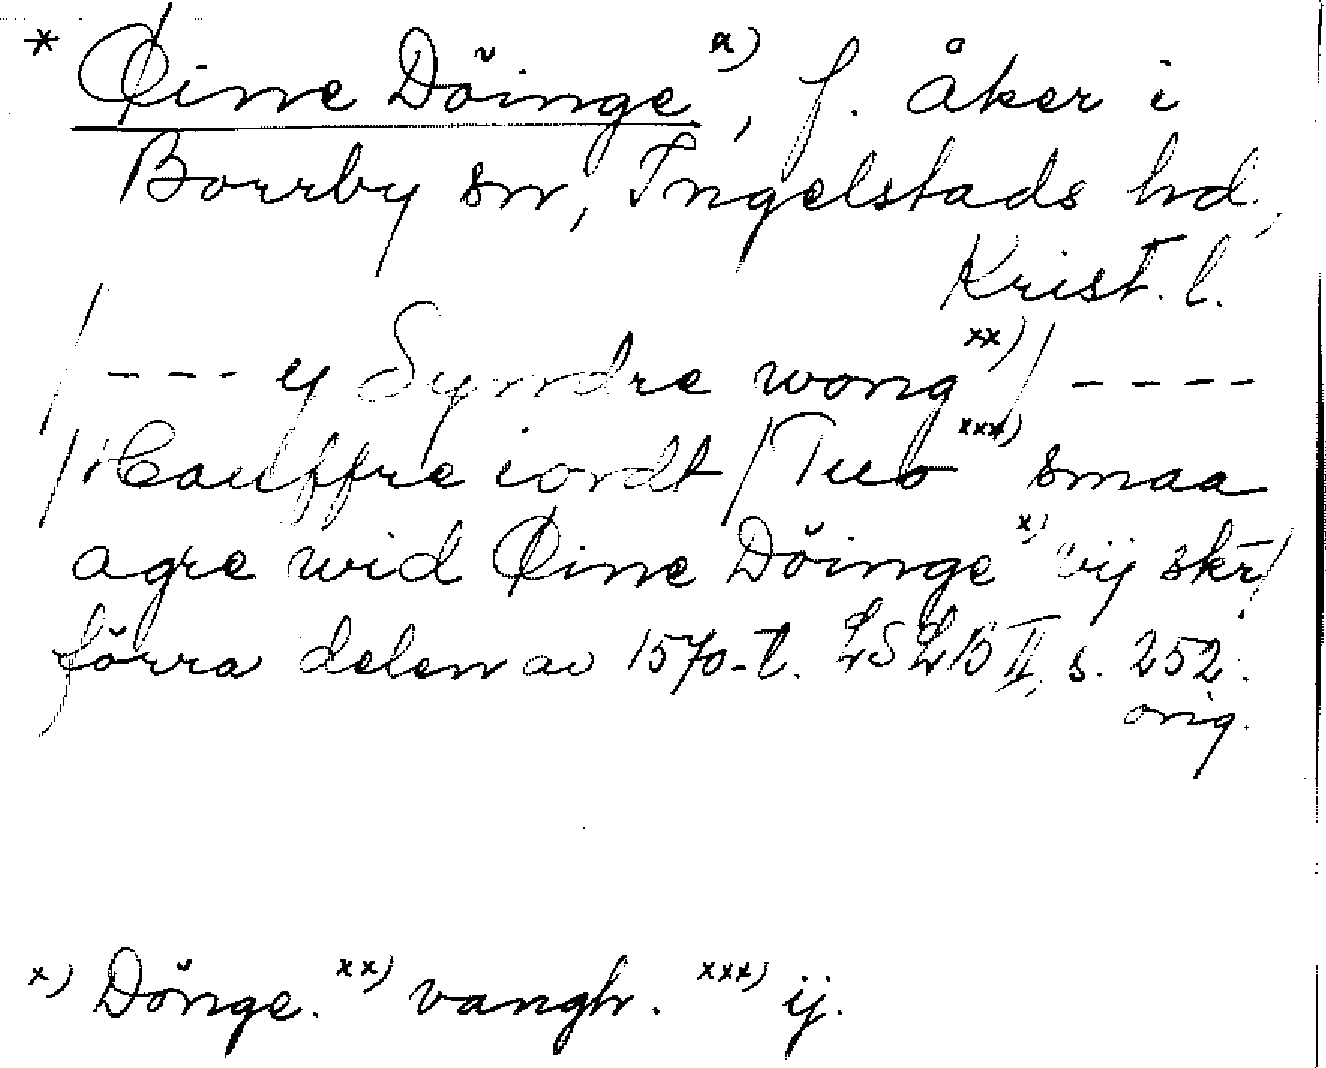 * Øine Döinge x), f. åker i
Borrby sn, Ingelstads hd.,
Krist. l.
/ --- y Syndre wong xx) / ----
/ Hauffre iordt / Tuo xxx) smaa
agre wid Øine Döinge x) vij skr /
förra delen av 1570-t. LSLB II, s. 252.
orig.
x) Dönge. xx) vangh. xxx) ij.